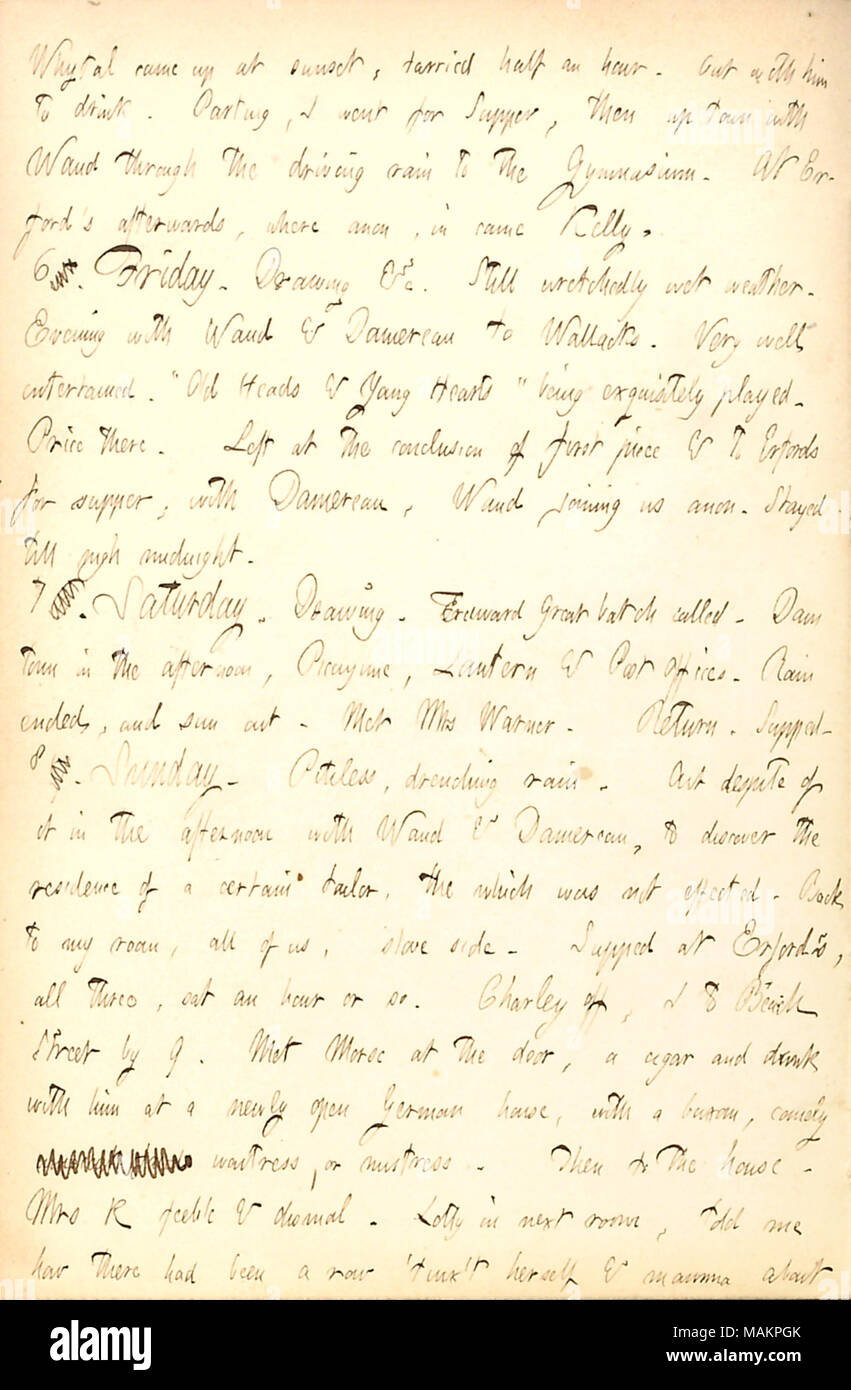 Whytal came up at sunset, tarried half an hour. Out with him
to drink. Parting, I went for Supper, then up town with
Waud through the driving rain to the Gymnasium. At Er-
ford's afterwards, where anon, in came Kelly.
6. Friday. Drawing &c. Still wretchedly wet weather.
Evening with Waud & Damereau to Wallacks. Very well
entertained. "Old Heads & Young Hearts" being exquisitely played.
Price there. Left at the conclusion of first piece & to Erfords
for supper, with Damereau, Waud joining us anon. Stayed
till nigh midnight.
7. Saturday. Drawing. Greatbatch called. Down
town in the afternoon, Picayune, Lantern & Post Offices. Rain
ended, and sun out. Met Mrs Warner. Return. Supped.
8. Sunday. Pitiless, drenching rain. Out despite of
it in the afternoon with Waud & Damereau, to discover the
residence of a certain tailor, the which was not effected. Back
to my room, all of us, stove side. Supped at Erford's,
all three, sat an hour or so. Charley off, I to Bleecker
Street by 9. Met Morse at the door, a cigar and drink
with him at a newly open German house, with a buxom, comely
waitress, or mistress. Then to the house.
Mrs K feeble & dismal. Lotty in next room, told me
how there had been a row 'twixt herself & mamma about
alamy
Image ID: MAKPGK
www.alamy.com